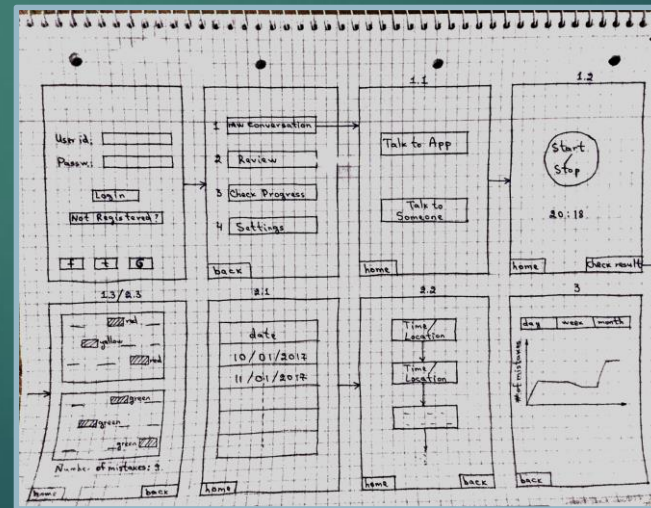 User id:
Passw:
Login
Not Registered?
f t G
1 New Conversation
2 Review
3 Check Progress
4 Settings
back
1.1
Talk to App
Talk to Someone
home
1.2
Start
/
Stop
20:18
home
Check result
1.3/2.3
red
yellow
red
green
green
green
Number of mistakes: 3
home
back
2.1
date
10/01/2017
11/01/2017
home
2.2
Time/
Location
Time/
Location
home
back
3
day week month
# of mistakes
back